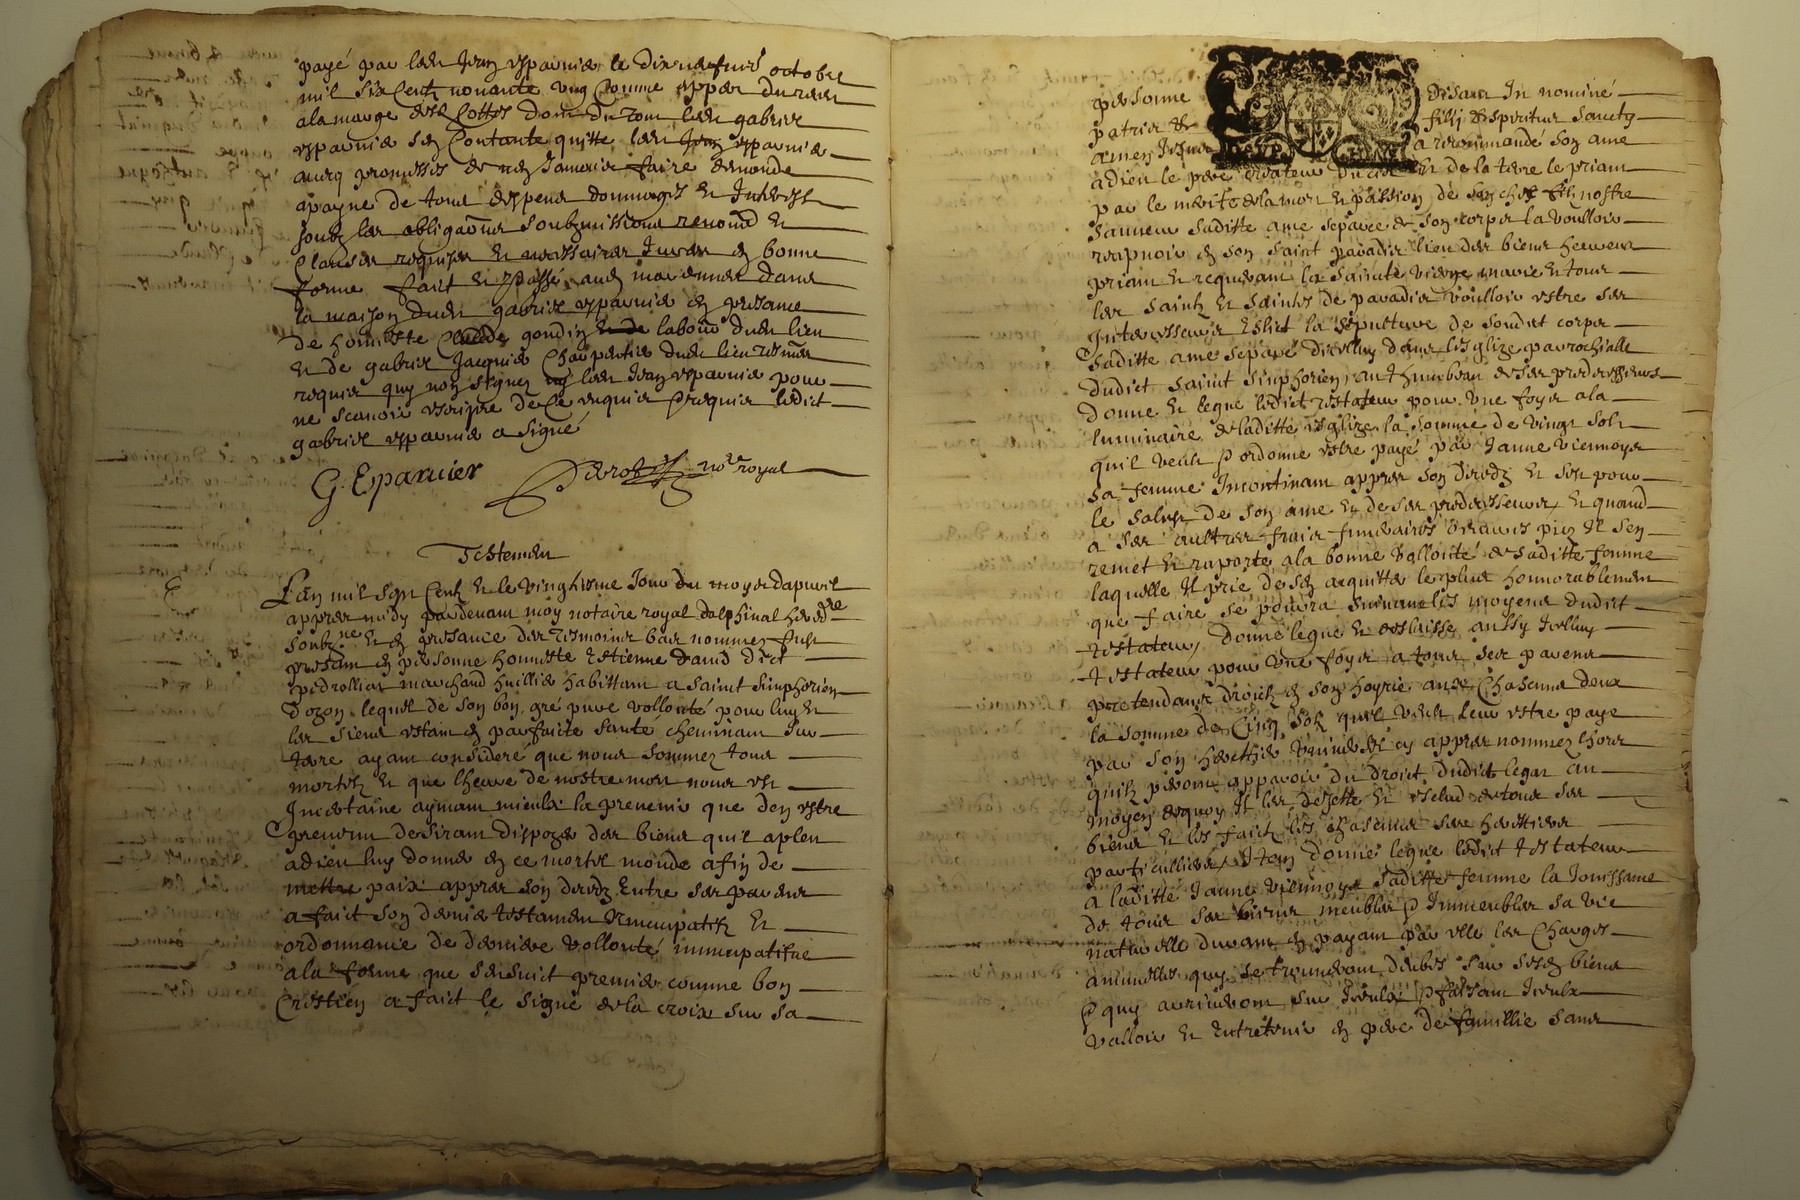 payé par led Jean esparvier le dixneufviē octobre
mil six Centz nonante ung Comme apper du receu
a la marge desd Cottes dont du tout led gabriel
esparvier sen Contante quitte led Jean esparvier
avecq promesses de nen Jamais faire demande
a payne de tous despens dommages et Interestz
soubz les obligaōns soubzmissions renonō et
Clauses requises et necessaires Jurées en bonne
forme faict et passé aud marennes dans
la maison dud gabriel esparvier en presance
de honneste Claude gondin labour dud lieu
et de gabriel Jacquier Charpentier dud lieu tesmoins
requis quy nont signez ny led Jean esparvier pour
ne scavoir escripre de Ce enquis & requis ledict
gabriel esparvier a signé
G. Eparuier noʳᵉ royal
Testement
L'an mil sept Centz et le vingtiesme Jour du moys dapvril
appres midy pardevant moy notaire royal dalphinal heredʳᵉ
soubzⁿᵉ et en presance des tesmoins bas nommez fust
presant en personne honneste Estienne David dict
pedrolliat marchand huillier habittant a saint simphorien
Dozon lequel de son bon gré pure vollonté pour luy et
les siens estant en parfaicte santé cheminant sur
terre ayant consideré que nous sommes tous
mortelz et que lheure de nostre mort nous est
Incertaine aymant mieulx la prevenir que den estre
prevenu desirant disposer des biens quil a pleu
a dieu luy donner en ce mortel monde afin de
mettre paix appres son decedz Entre ses parens
a faict son dernier testament Nuncupatif et
ordonnance de derniere vollonté nuncupatifve
a la forme que sensuict premier comme bon
Crestien a faict le signe de la croix sur sa
personne disant In nomine
patris et filij et spiritus sancty
amen a recommandé son ame
a dieu le pere createur du ciel et de la terre le priant
par le merite de la mort et passion de son cher filz nostre
sauveur saditte ame separée de son corps la voulloir
recepvoir en son saint paradis lieu des biens heureux
priant et requerant la sainte vierge marie et tous
les saintz et saintes de paradis voulloir estre ses
Intercesseurs Eslict la sepulture de soudict corps
saditte ame separé dicelluy dans lesglize parrochialle
dudict saint simphorien, au thumbeau de ses predecesseurs
donne et legue ledict testateur pour une foys a la
luminaire de laditte esglize la somme de vingt solz
quil veult & ordonne estre payé par Janne viennoys
sa femme Incontinant appres son decedz et ce pour
le salut de son ame et de ses predecesseurs, et quand
a ses aultres frais funeraires œuvres pies Il sen
remet et raporte a la bonne vollonté de saditte femme
laquelle Il prie de sen acquitter le plus honnorablement
que faire se pourra suivant les moyens dudict
testateur, donne legue et deslaisse aussy Icelluy
testateur pour une foys a tous ses parens
pretendants droictz en son hoyrie a un Chascuns deux
la somme de Cinq solz quil veult leur estre payé
par son heretier universel cy appres nommez lhors
quilz feront apparoir du droict dudict legat au
moyen dequoy Il les dejette et exclud de tous ses
biens et les faict les Chascuns ses heretiers
particulliers, Item donne legue ledict testateur
a laditte Janne viennoys saditte femme la Jouissance
de tous ses biens meubles & Immeubles sa vie
naturelle durant en payant par elle les Charges
annuelles quy se trouveront deubes sur sesd biens
& quy arriveront sur Iceulx & faisant Iceulx
valloir et entretenir en pere de famillie sans